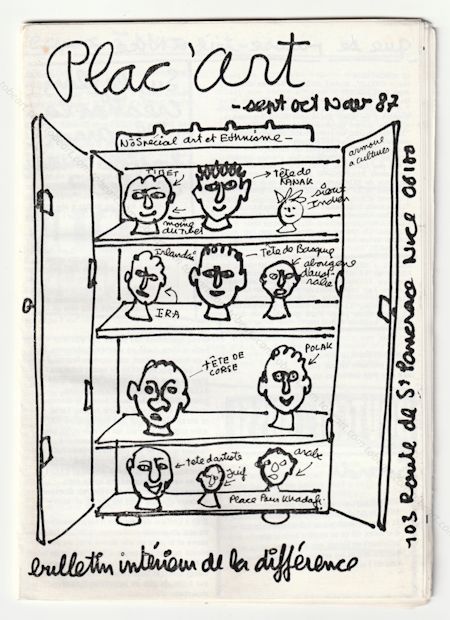 Plac'Art
- sept oct Nov 87
N° Special art et Ethnisme -
armoire
a cultures
TIBET
tête de
KANAK
sioux
Indien
moine
du Tibet
Irlandais
Tête de Basque
aborigene
d'aust
ralie
IRA
tête de
corse
POLAK
tête d'artiste
juif
arabe
Place Pour Khadafi
103 Route de St Pancrace Nice 06100
bulletin intérieur de la différence